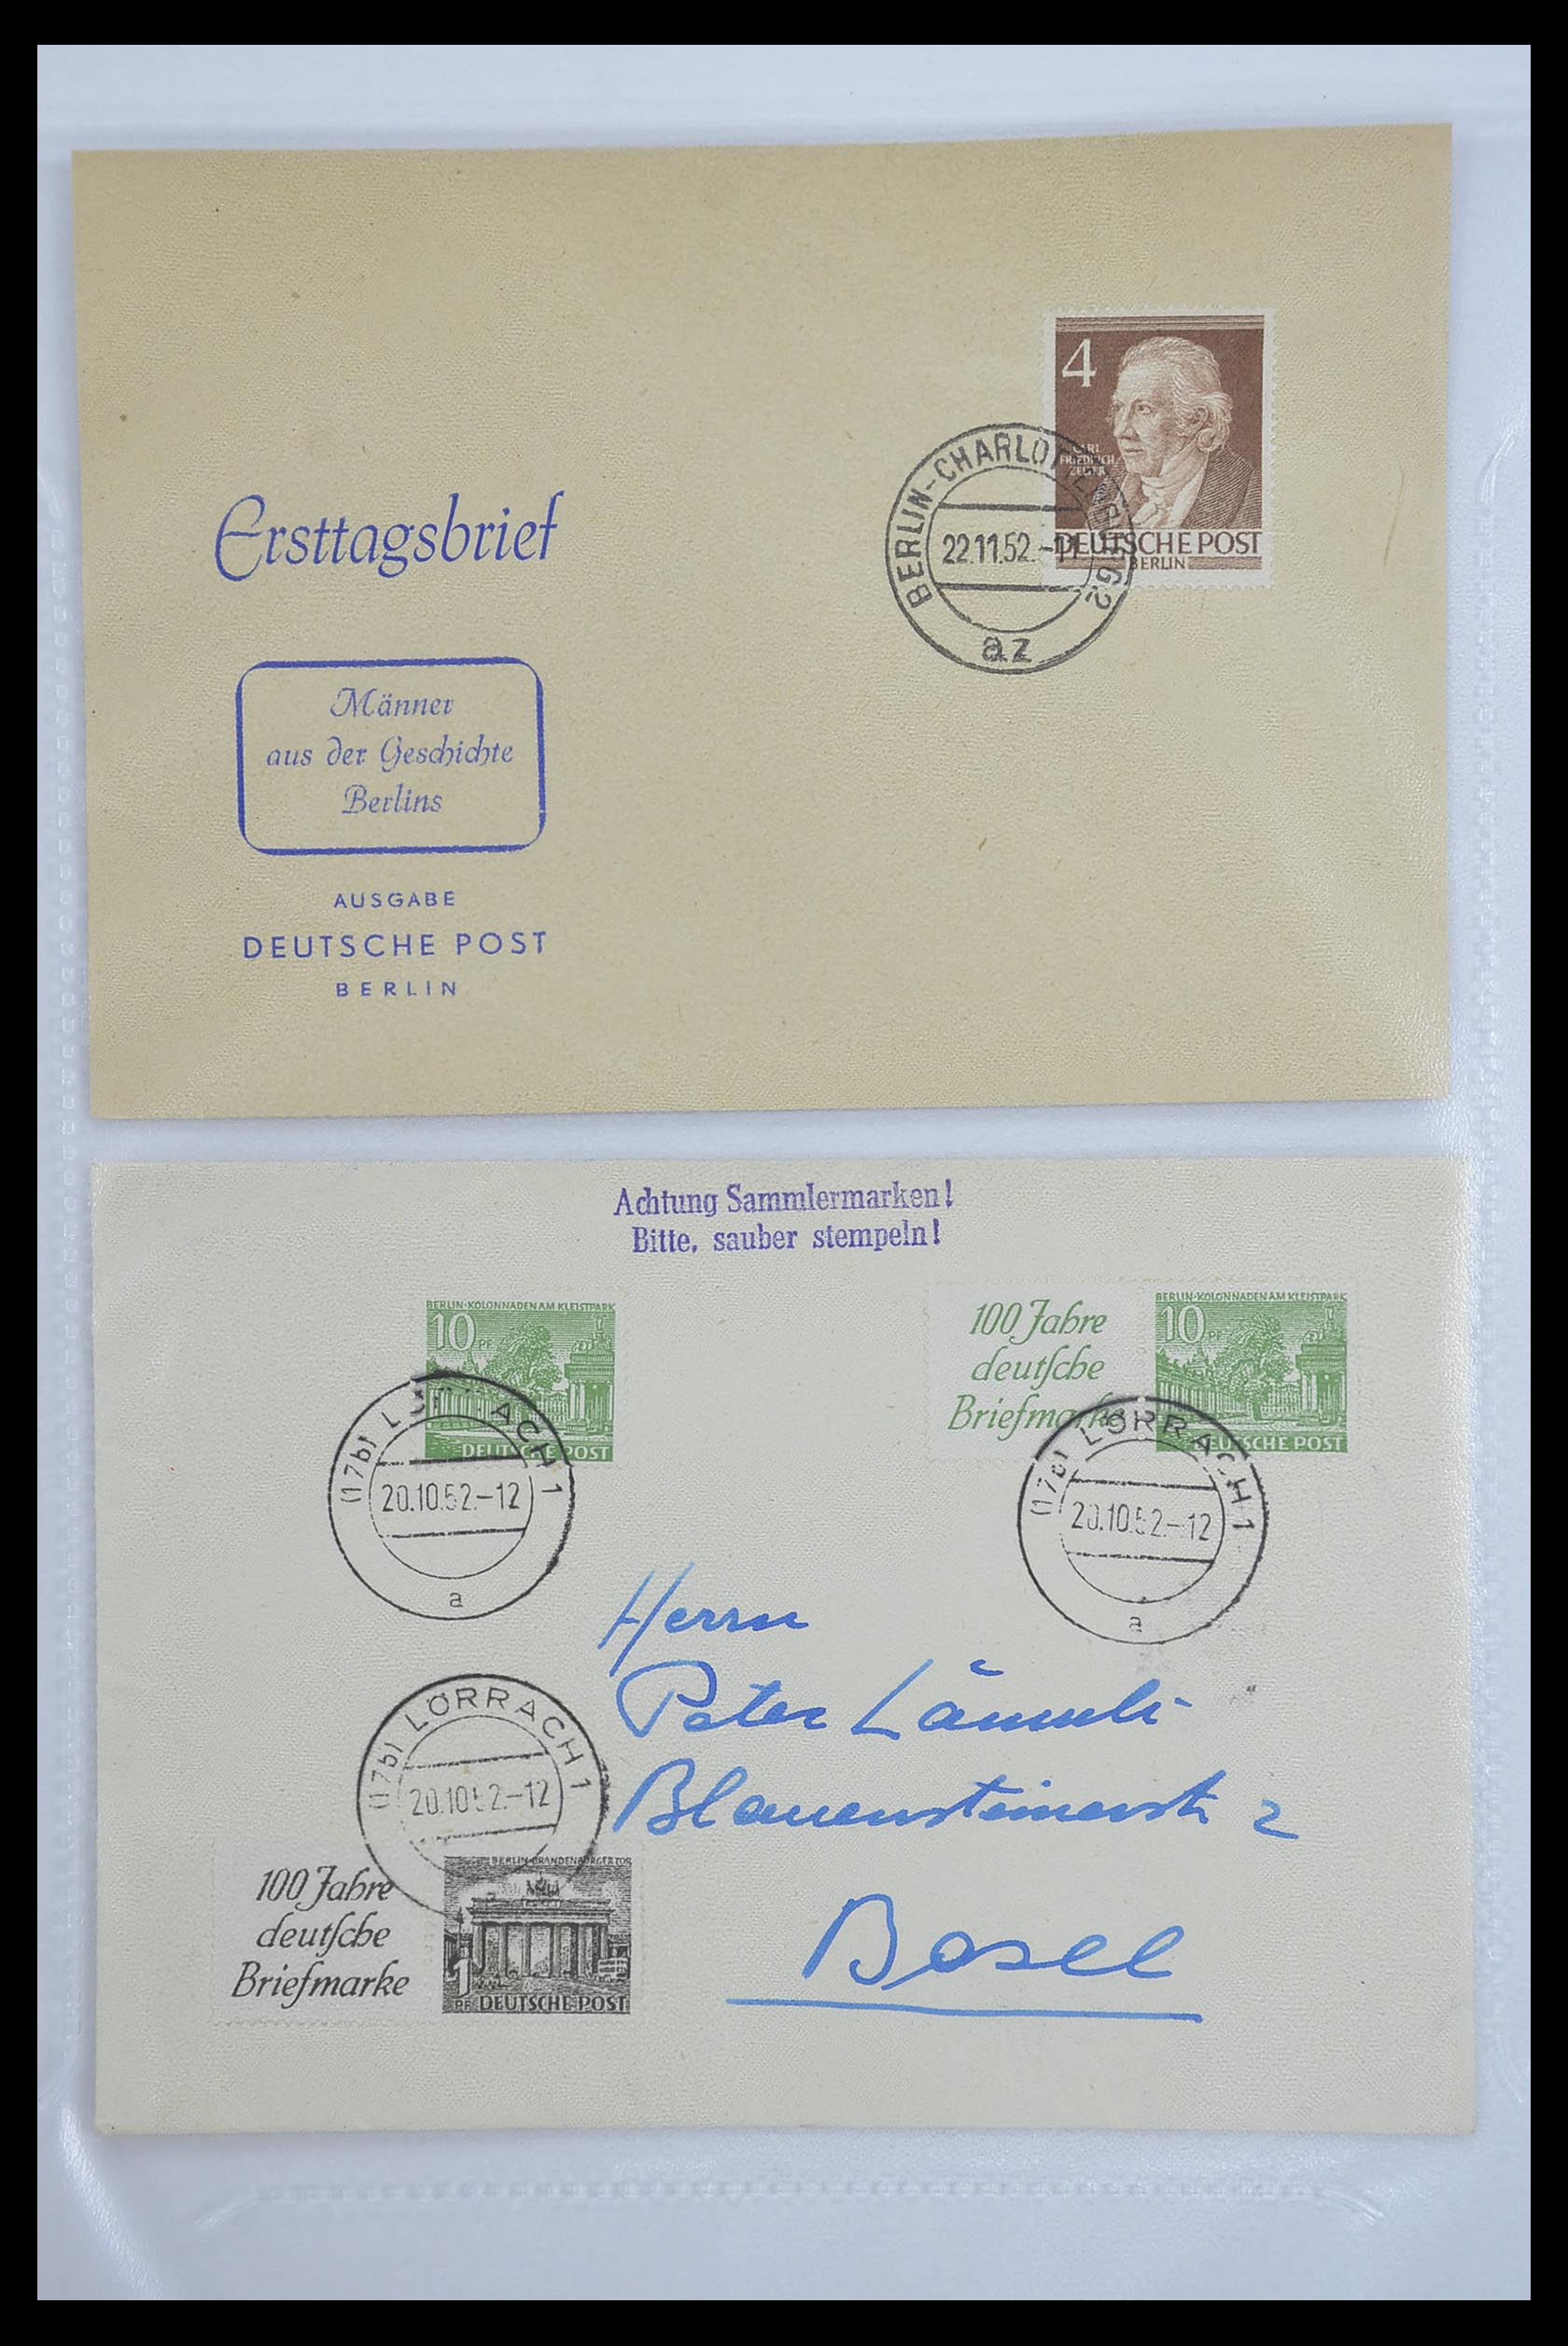 4
CARL
FRIEDRICH
ZELTER
DEUTSCHE POST
BERLIN
BERLIN-CHARLOTTENBURG2
22.11.52.-11
az
Ersttagsbrief
Männer
aus der Geschichte
Berlins
AUSGABE
DEUTSCHE POST
BERLIN
Achtung Sammlermarken!
Bitte, sauber stempeln!
BERLIN·KOLONNADEN AM KLEISTPARK
10 PF
DEUTSCHE POST
(17b) LÖRRACH 1
20.10.52.-12
a
100 Jahre
deutsche
Briefmarke
BERLIN·KOLONNADEN AM KLEISTPARK
10 PF
DEUTSCHE POST
(17b) LÖRRACH 1
20.10.52.-12
a
Herrn
Peter Lämmli
Blauensteinerstr 2
Basel
(17b) LÖRRACH 1
20.10.52.-12
100 Jahre
deutsche
Briefmarke
BERLIN·BRANDENBURGER TOR
1 PF DEUTSCHE POST